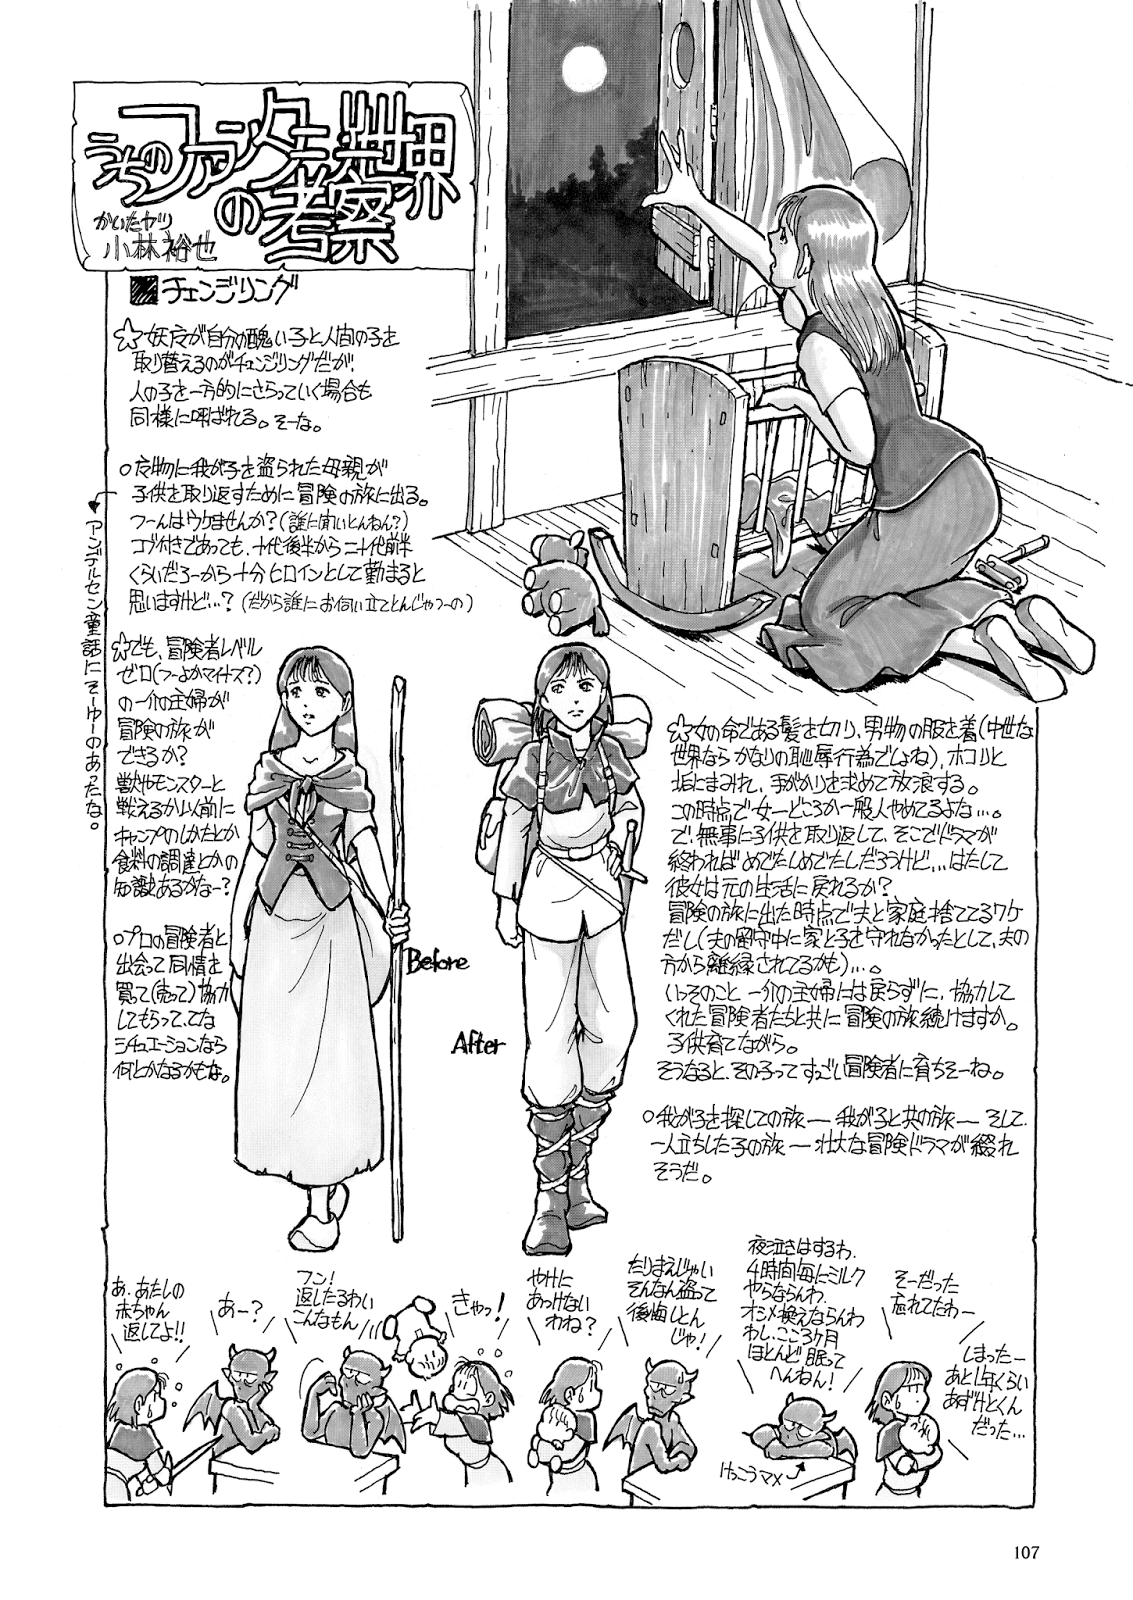 うちのファンタジー世界
の考察
かいたヤツ
小林裕也
チェンジリング
☆妖精が自分の醜い子と人間の子を
取り替えるのがチェンジリングだが、
人の子を一方的にさらっていく場合も
同様に呼ばれる。そーな。
○魔物に我が子を盗られた母親が
子供を取り返すために冒険の旅に出る。
フーんはウケませんか?(誰に聞いとんねん?)
コブ付きであっても、十代後半から二十代前半
くらいだろーから十分ヒロインとして勤まると
思いますけど…?(だから誰にお伺い立てとんじゃつーの)
アンデルセン童話にそーゆーのあったな。
☆でも、冒険者レベル
ゼロ(つーよかマイナス?)
の一介の主婦が
冒険の旅が
できるか?
獣やモンスターと
戦えるか以前に
キャンプのしかたとか
食料の調達とかの
知識あるかなー?
○プロの冒険者と
出会って同情を
買って(売って)協力
してもらって、てな
シチュエーションなら
何とかなるかもな。
Before
After
☆女の命である髪を切り、男物の服を着(中世な
世界ならかなりの恥辱行為でしょね)、ホコリと
垢にまみれ、手がかりを求めて放浪する。
この時点で女ーどころか一般人やめてるよな…。
で、無事に子供を取り返して、そこでドラマが
終わればめでたしめでたしだろうけど…はたして
彼女は元の生活に戻れるか?
冒険の旅に出た時点で夫と家庭捨ててるワケ
だし(夫の留守中に家と子を守れなかったとして、夫の
方から離縁されてるかも)…。
いっそのこと一介の主婦には戻らずに、協力して
くれた冒険者たちと共に冒険の旅続けますか。
子供育てながら。
そうなると、その子ってすっごい冒険者に育ちそーね。
○我が子を探しての旅―我が子と共の旅―そして、
一人立ちした子の旅―壮大な冒険ドラマが綴れ
そうだ。
あ、あたしの
赤ちゃん
返してよ!!
あー?
フン!
返したるわい
こんなもん
きゃっ!
やけに
あっけない
わね?
たりまえじゃい
そんなん盗って
後悔しとん
じゃ!
夜泣きはするわ、
4時間毎にミルク
やらならんわ、
オシメ換えならんわ
わし、ここ3ヶ月
ほとんど眠って
へんねん!
けっこうマメ
そーだった
忘れてたわー
しまったー
あと1年くらい
あずけとくん
だった…
107